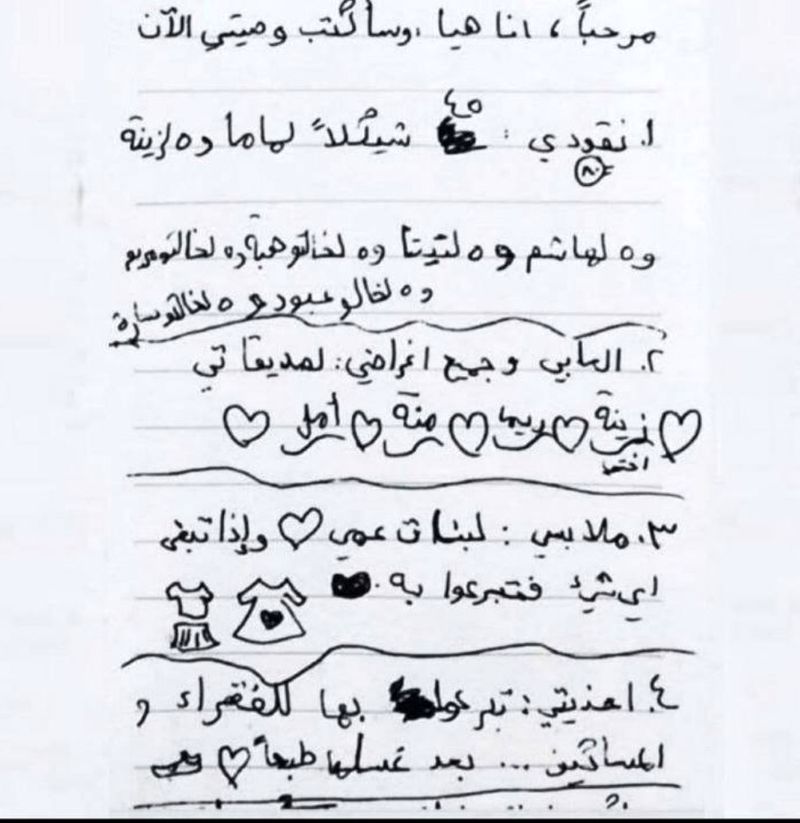 مرحباً ، انا هيا ، وسأكتب وصيتي الآن
٤٥
١. نقودي : شيكلاً لماما و ٥ لزينة
٨٠
و ٥ لهاشم و ٥ لتيتا و ٥ لخالتو هبة و ٥ لخالتو مريم
و ٥ لخالو عبود و ٥ لخالتو سارة
٢. العابي و جميع اغراضي : لصديقاتي
زينة ريما منة أمل
اختي
٣. ملابسي : لبنات عمي وإذا تبقى
اي شيء فتبرعوا به .
٤. احذيتي : تبرعوا بها للفقراء و
المساكين ... بعد غسلها طبعاً